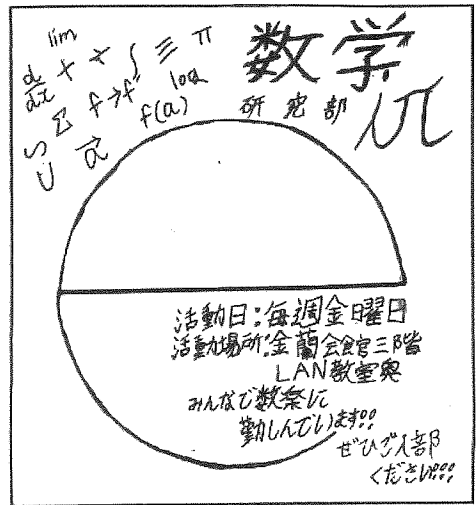 lim
d/dx + ÷ ∫ ≡ π
∽ Σ f→f' log
⊂ a→ f(a)
数学
研究部
活動日:毎週金曜日
活動場所:金蘭会館三階
LAN教室奥
みんなで数楽に
勤しんでいます!!
ぜひご入部
ください!!!